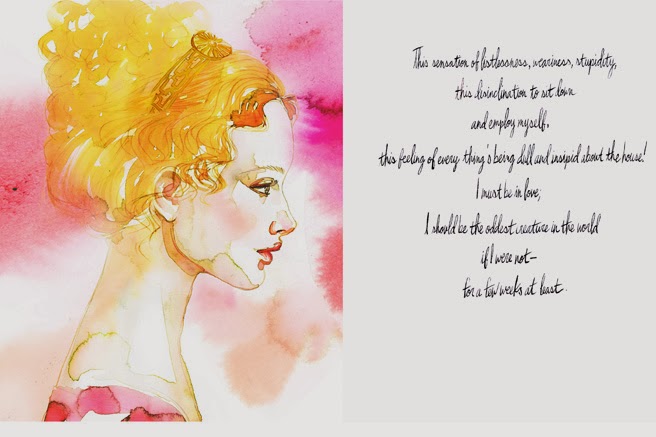 This sensation of listlessness, weariness, stupidity,
this disinclination to sit down
and employ myself,
this feeling of every thing's being dull and insipid about the house!
I must be in love;
I should be the oddest creature in the world
if I were not—
for a few weeks at least.